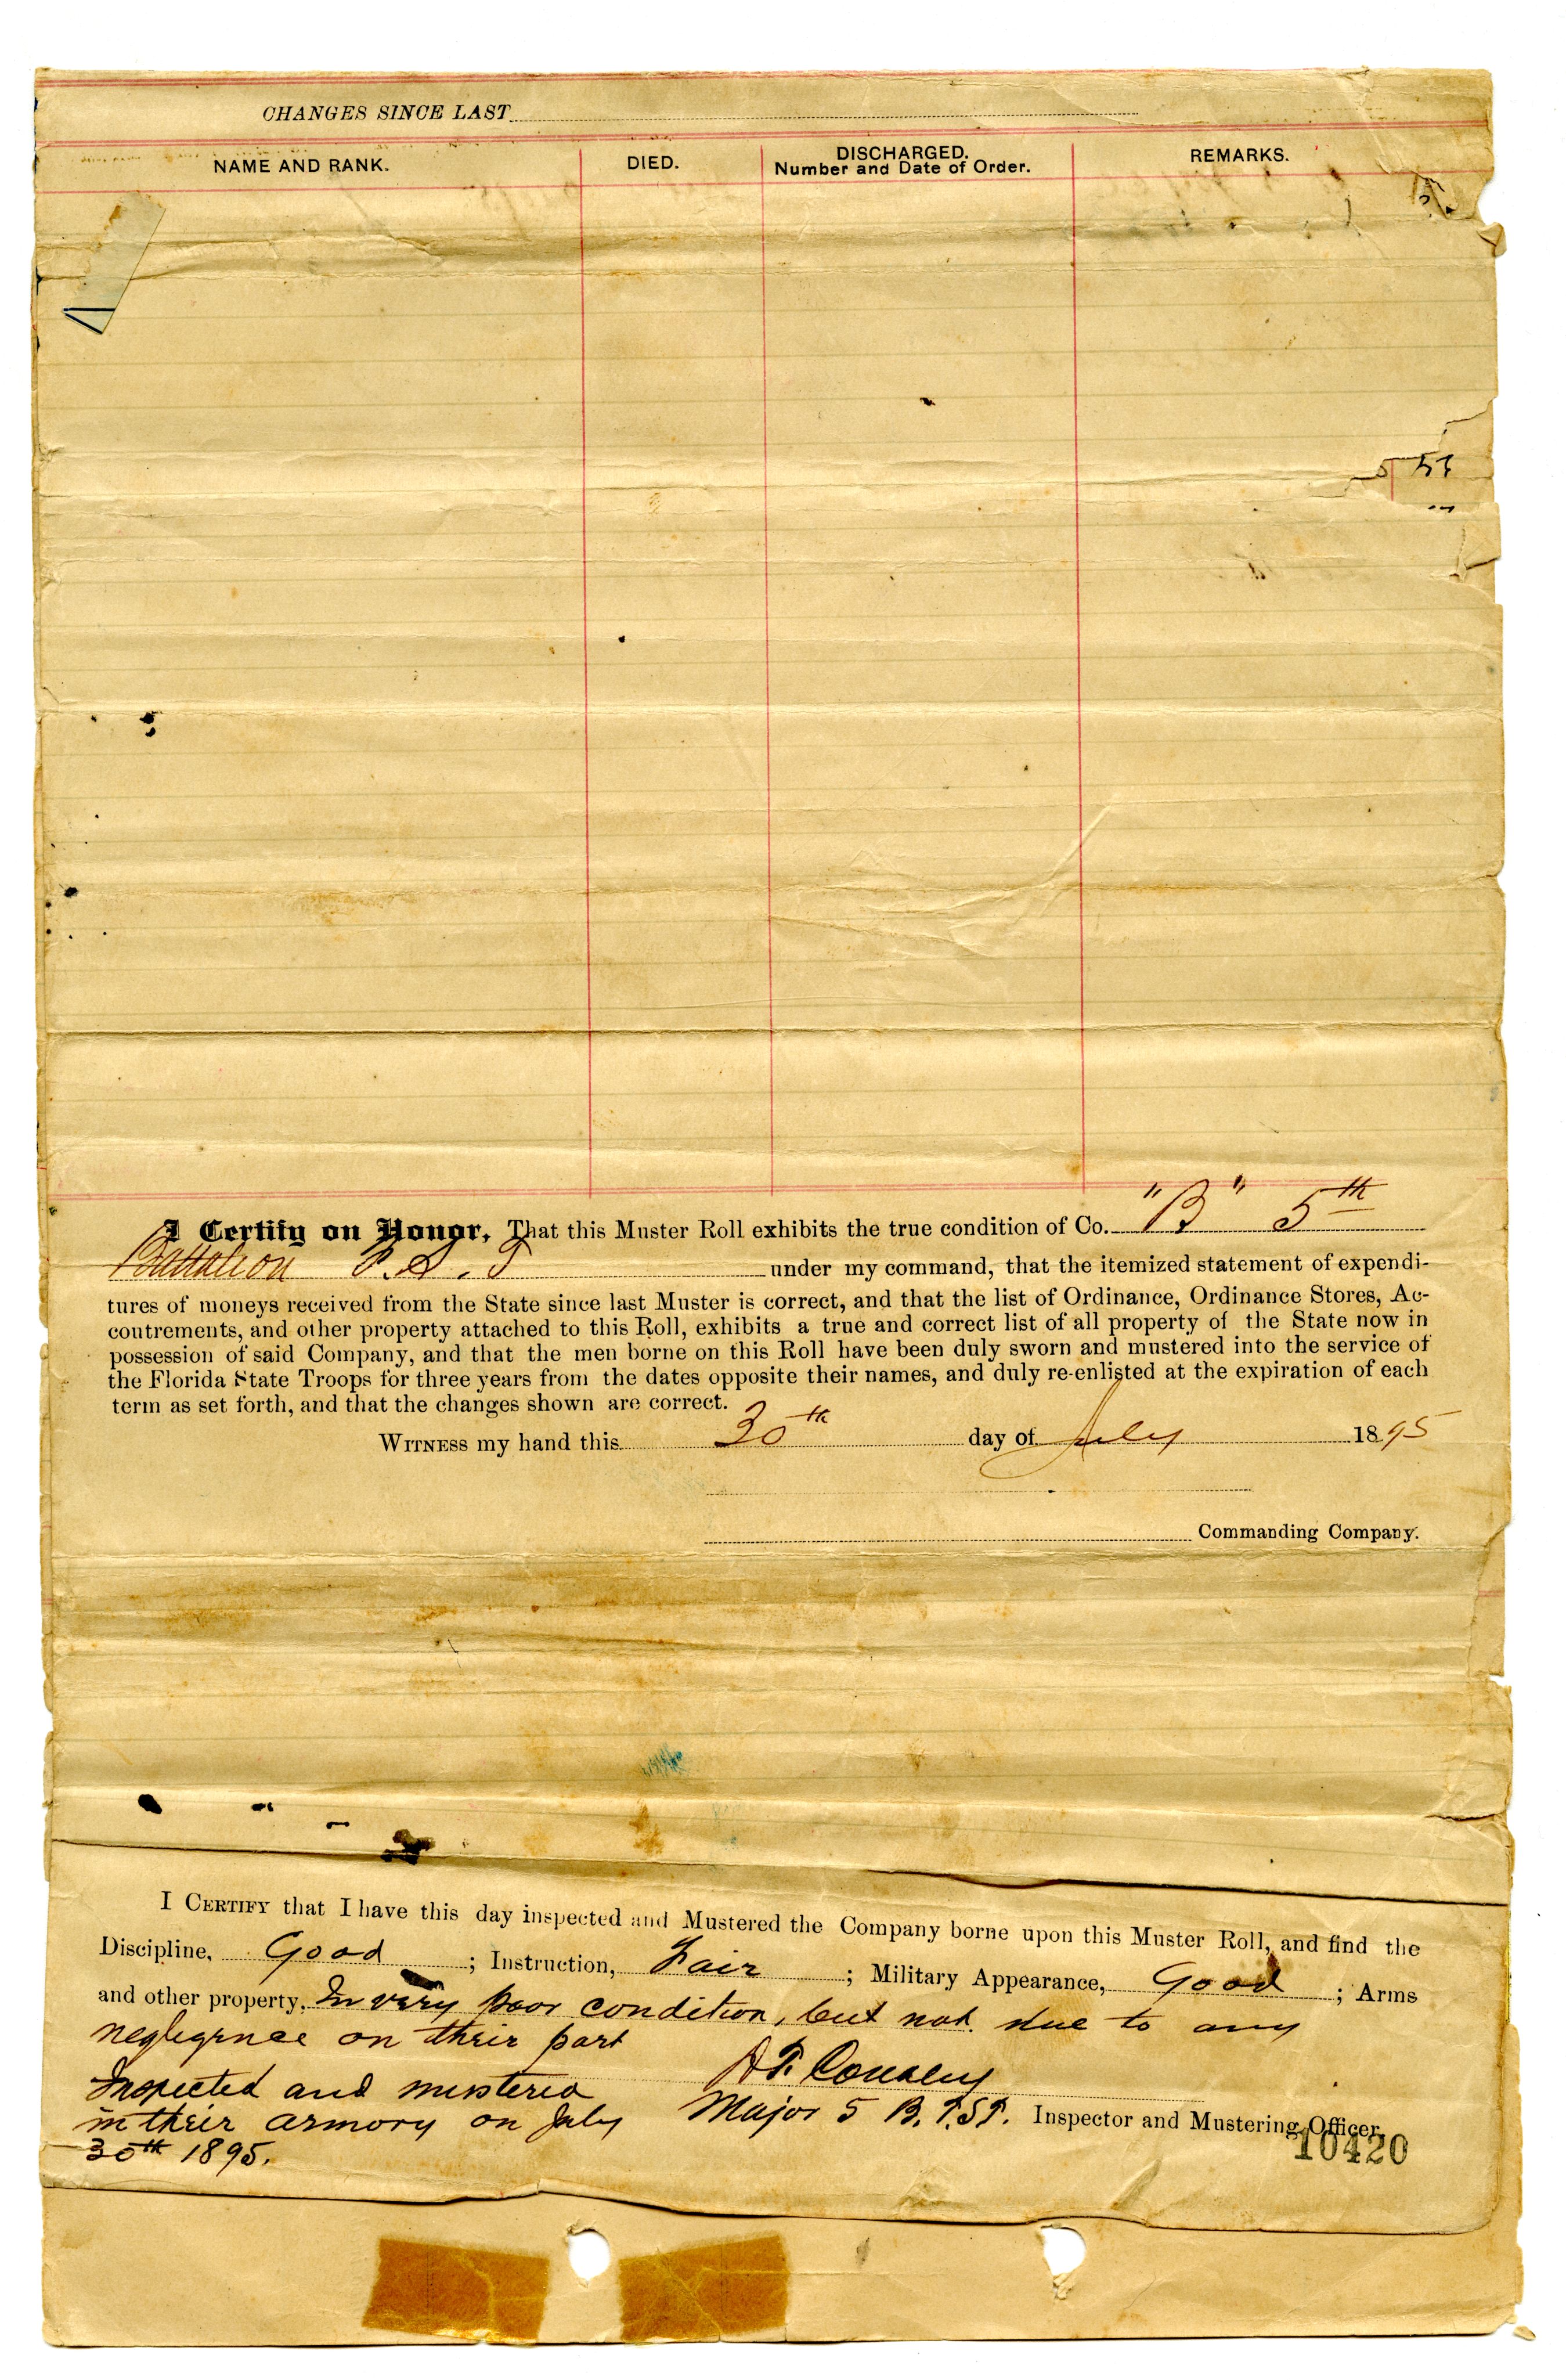 CHANGES SINCE LAST
NAME AND RANK. DIED. DISCHARGED. Number and Date of Order. REMARKS.
5 57
I Certify on Honor, That this Muster Roll exhibits the true condition of Co. "B" 5th
Battalion F.S.T under my command, that the itemized statement of expendi-
tures of moneys received from the State since last Muster is correct, and that the list of Ordinance, Ordinance Stores, Ac-
coutrements, and other property attached to this Roll, exhibits a true and correct list of all property of the State now in
possession of said Company, and that the men borne on this Roll have been duly sworn and mustered into the service of
the Florida State Troops for three years from the dates opposite their names, and duly re-enlisted at the expiration of each
term as set forth, and that the changes shown are correct.
WITNESS my hand this 30th day of July 1895
Commanding Company.
I CERTIFY that I have this day inspected and Mustered the Company borne upon this Muster Roll, and find the
Discipline, Good ; Instruction, Fair ; Military Appearance, Good ; Arms
and other property, In very poor condition, but not due to any
negligence on their part
Inspected and mustered
in their armory on July Major 5 B. F.S.T. Inspector and Mustering Officer.
30th 1895.
10420